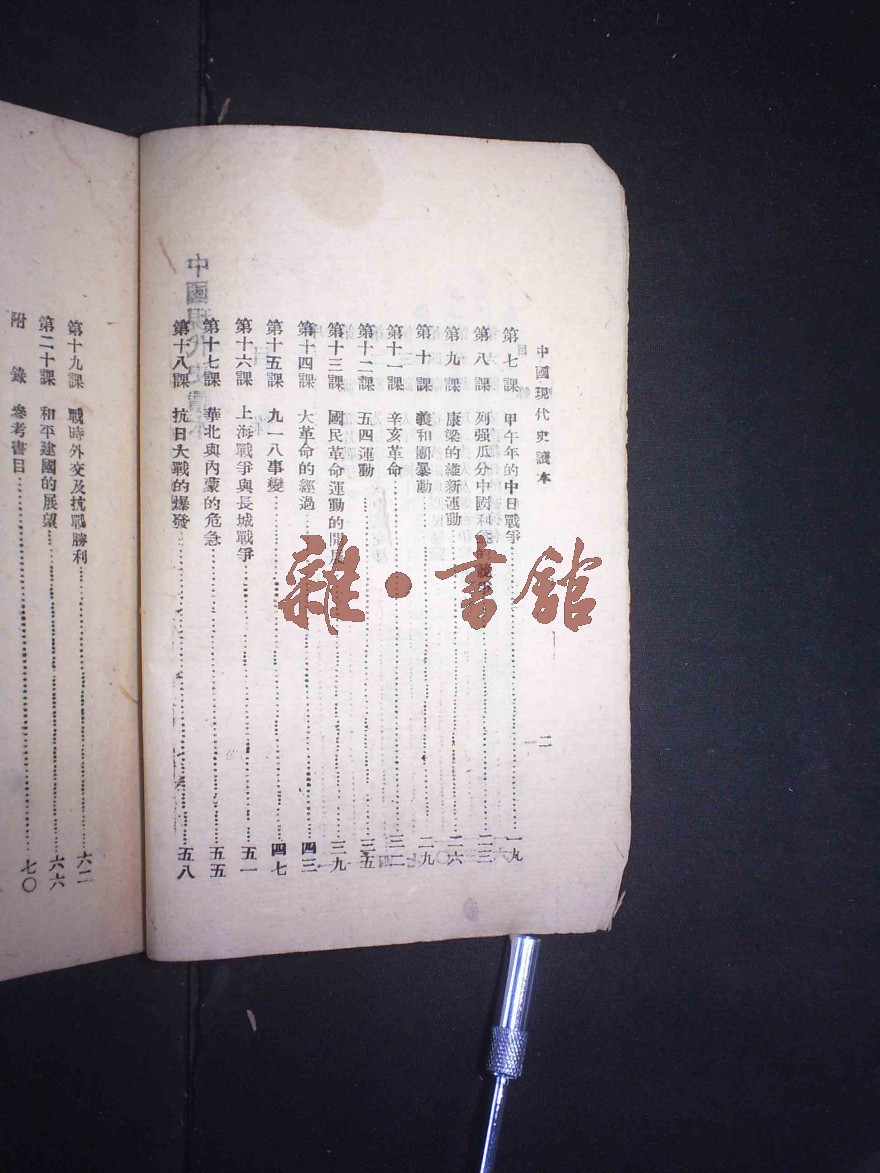 中國現代史讀本
目錄
二
第七課 甲午年的中日戰爭 一九
第八課 列强瓜分中國利 二三
第九課 康梁的維新運動 二六
第十課 義和團暴動 二九
第十一課 辛亥革命 三二
第十二課 五四運動 三五
第十三課 國民革命運動的開展 三九
第十四課 大革命的經過 四三
第十五課 九一八事變 四七
第十六課 上海戰爭與長城戰爭 五一
第十七課 華北與內蒙的危急 五五
第十八課 抗日大戰的爆發 五八
第十九課 戰時外交及抗戰勝利 六二
第二十課 和平建國的展望 六六
附錄 參考書目 七〇
雜·書館